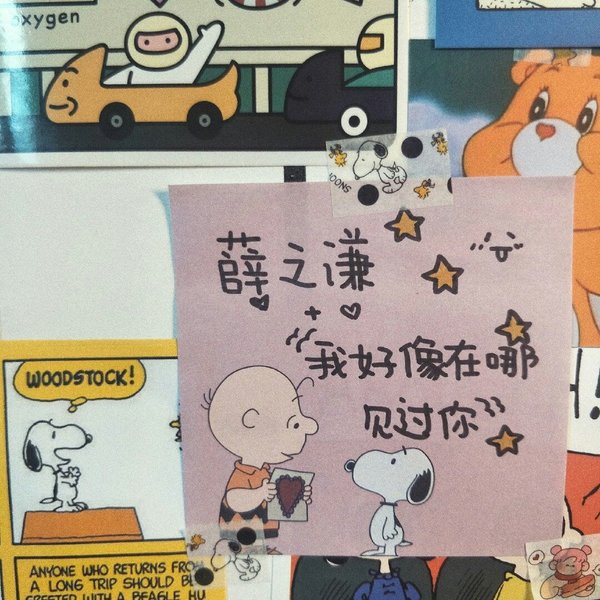 oxygen
OONS
薛之谦
+
"我好像在哪
见过你"
WOODSTOCK!
H!
ANYONE WHO RETURNS FRO
A LONG TRIP SHOULD BE
GREETED WITH A BEAGLE HU